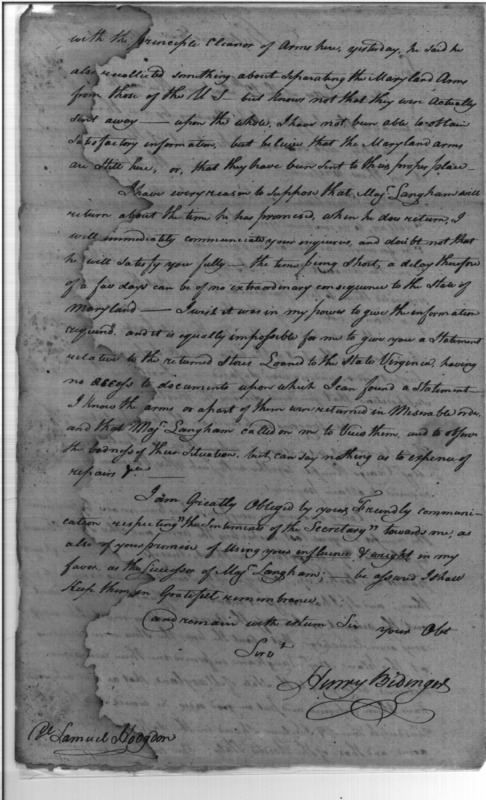 with the principle Cleanor of Arms here, yesterday, he said he
also recollected something about separating the Maryland Arms
from those of the U S - but knows not that they were actually
sent away — upon the whole, I have not been able to obtain
satisfactory information, but believe that the Maryland arms
are still here, or, that they have been sent to their proper place -
I have every reason to suppose that Majr Langham will
return about the time he has promised, when he does return, I
will immediately communicate your inquiries, and doubt not that
he will satisfy you fully — the time being short, a delay therefore
of a few days can be of no extraordinary consequence to the State of
Maryland — I wish it was in my power to give the information
required. and it is equally impossible for me to give you a Statement
relative to the returned Stores Loaned to the State Virginia, having
no access to documents upon which I can found a Statement -
I know the arms or a part of them were returned in Miserable order,
and that Majr Langham called on me to View them, and to observe
the badness of their Situation, but can say nothing as to expence of
repairs &c —
I am Greatly Obliged by your Friendly communi-
cation respecting "the Intentions of the Secretary" towards me; as
also of your promise of Using your influence & weight in my
favor as the Successor of Majr Langham; — be assured I shall
Keep them in Grateful remembrance.
and remain with esteem Sir your Obt
Servt
Henry Bidinger
Samuel Hodgdon